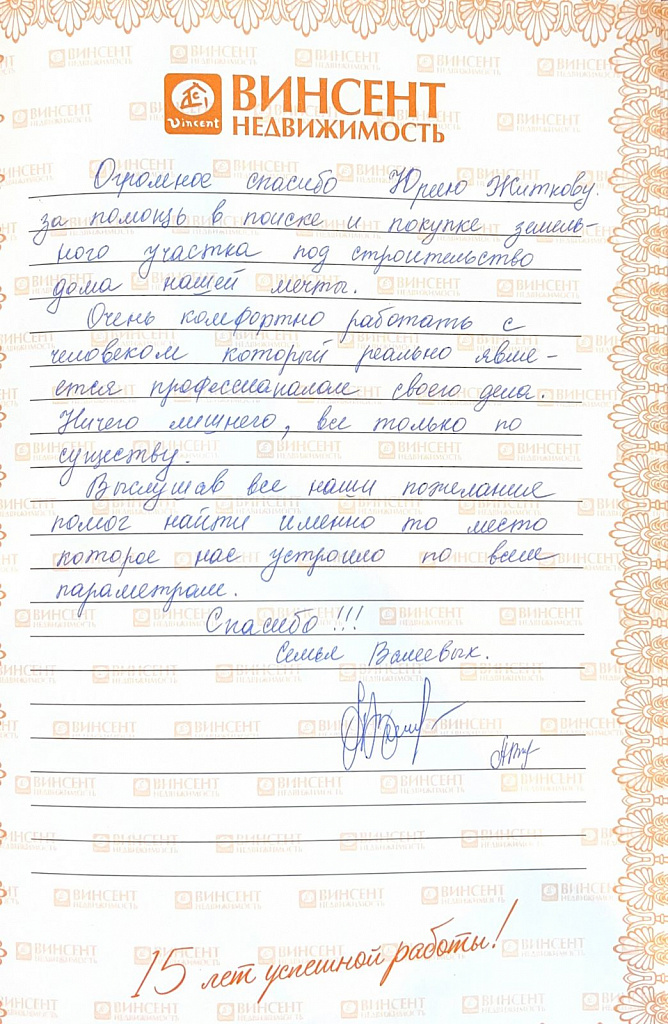 Vincent
ВИНСЕНТ
НЕДВИЖИМОСТЬ
Огромное спасибо Юрию Житкову.
за помощь в поиске и покупке земель-
ного участка под строительство
дома нашей мечты.
Очень комфортно работать с
человеком который реально явля-
ется профессионалом своего дела.
Ничего лишнего, все только по
существу.
Выслушав все наши пожелания
помог найти именно то место
которое нас устроило по всем
параметрам.
Спасибо!!!
Семья
15 лет успешной работы!